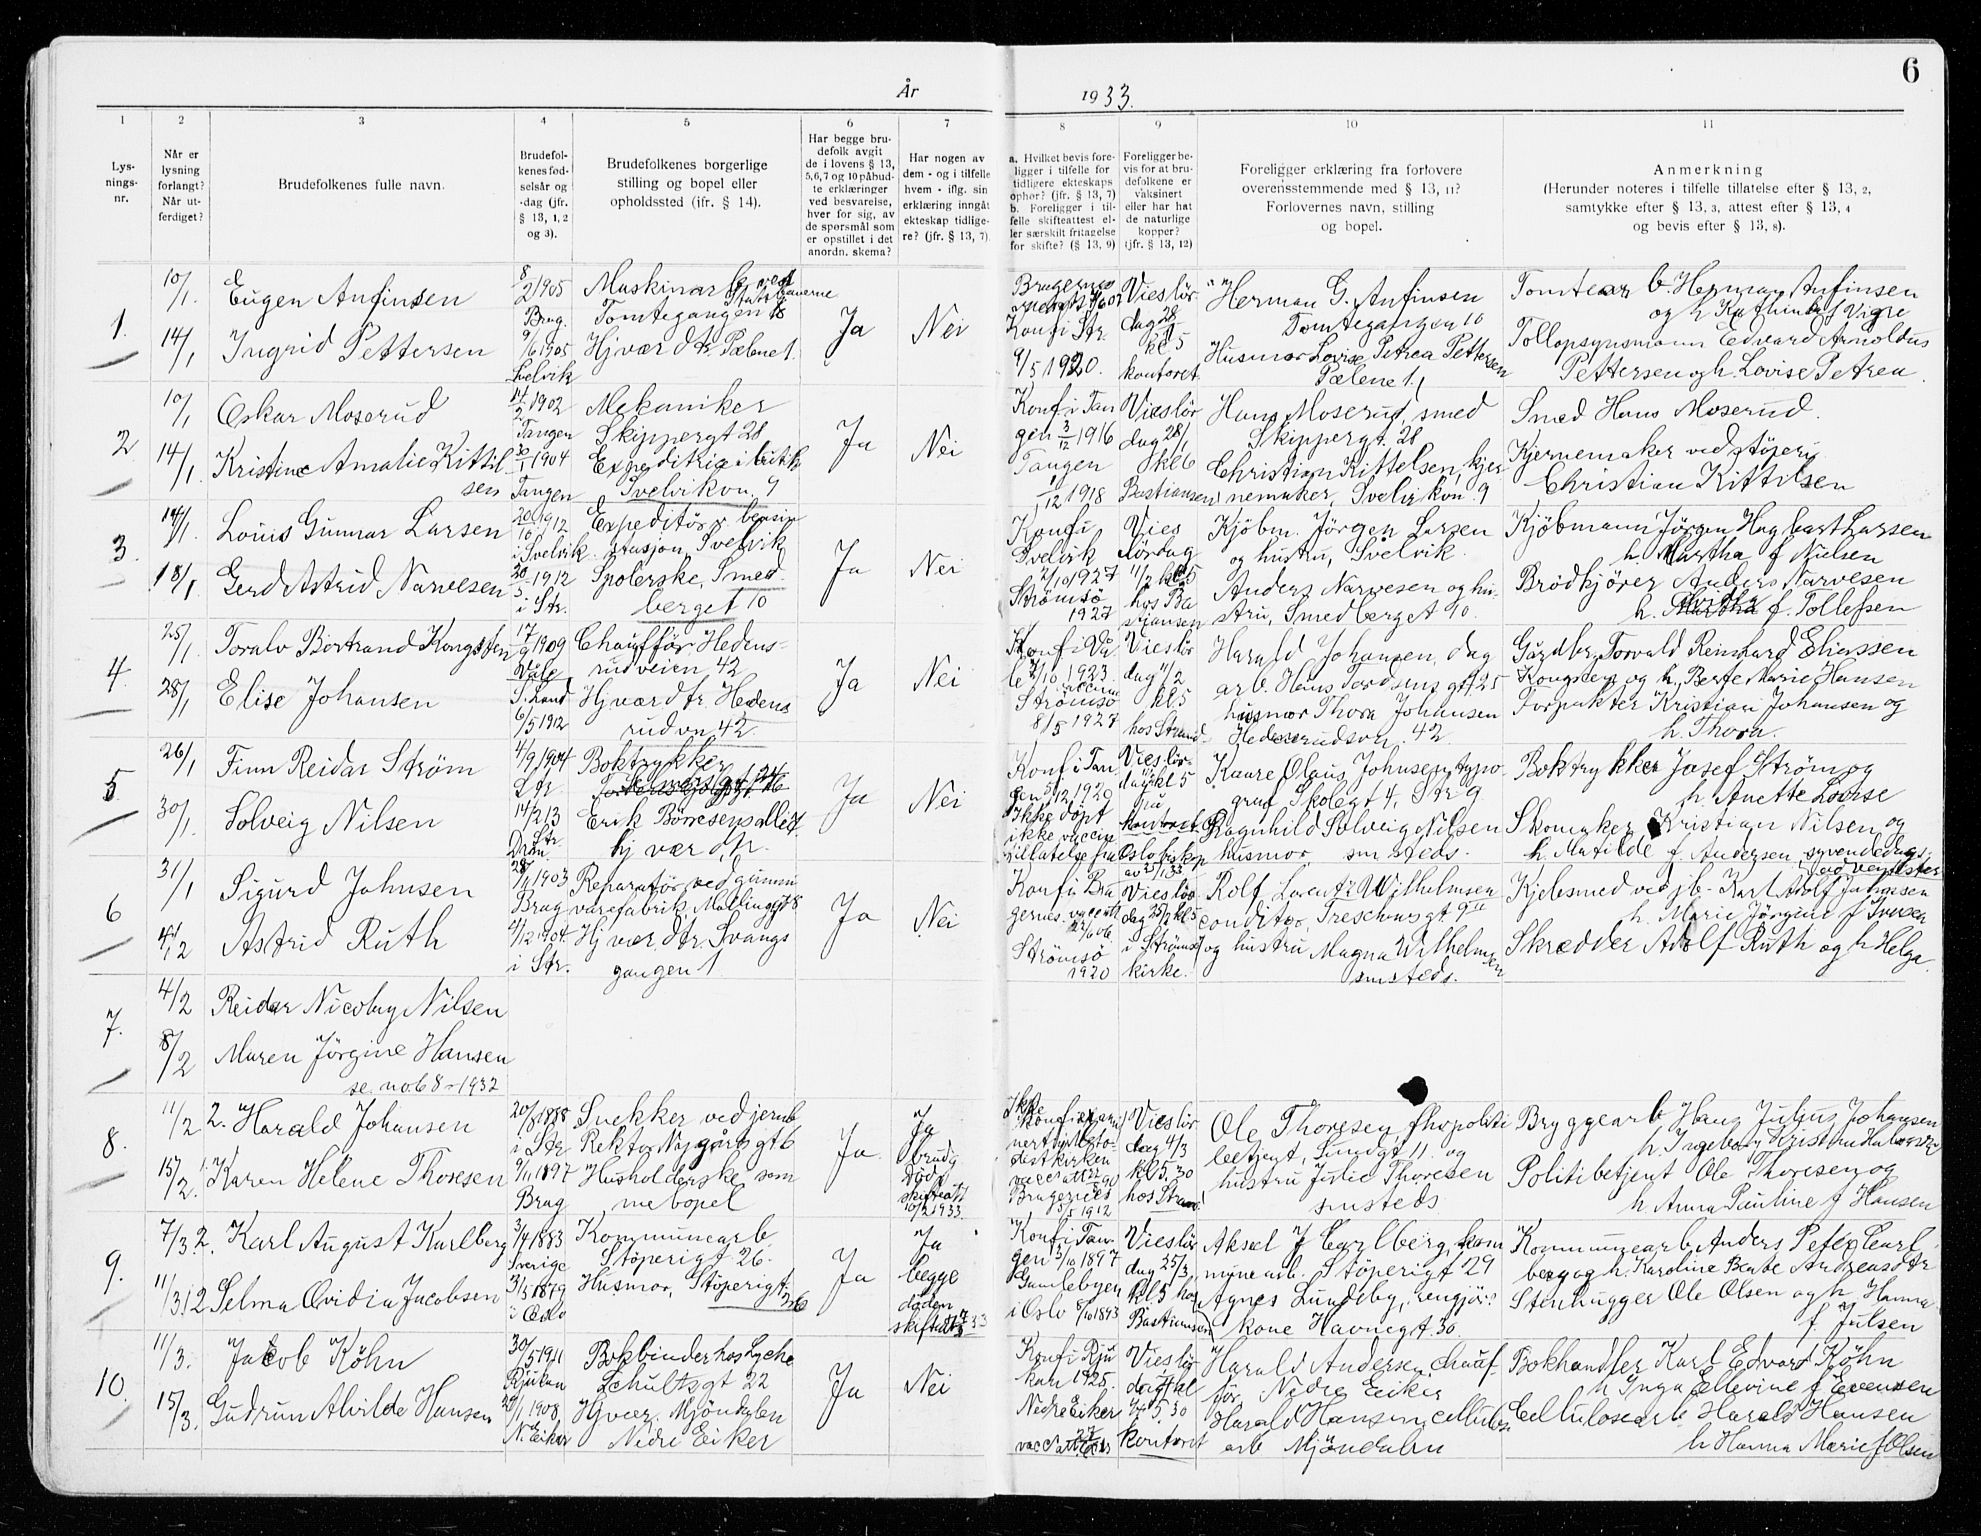 6
År 1933.
1
2
3
4
5
6
7
8
9
10
11
Lys-
nings-
nr.
Når er
lysning
forlangt?
Når ut-
ferdiget?
Brudefolkenes fulle navn.
Brudefol-
kenes fød-
selsår og
-dag (jfr.
§ 13, 1, 2
og 3).
Brudefolkenes borgerlige
stilling og bopel eller
opholdssted (ifr. § 14).
Har begge bru-
defolk avgit
de i lovens § 13,
5,6,7 og 10 påbud-
te erklæringer
ved besvarelse,
hver for sig, av
de spørsmål som
er opstillet i det
anordn. skema?
Har nogen av
dem - og i tilfelle
hvem - iflg. sin
erklæring inngåt
ekteskap tidlige-
re? (jfr. § 13, 7).
a. Hvilket bevis fore-
ligger i tilfelle for
tidligere ekteskaps
ophør? (jfr. § 13, 7)
b. Foreligger i til-
felle skifteattest el-
ler særskilt fritagelse
for skifte? (§ 13, 9)
Foreligger be-
vis for at bru-
defolkene er
vaksinert
eller har hat
de naturlige
kopper?
(jfr. § 13, 12)
Foreligger erklæring fra forlovere
overensstemmende med § 13, 11?
Forlovernes navn, stilling
og bopel.
Anmerkning
(Herunder noteres i tilfelle tillatelse efter § 13, 2,
samtykke efter § 13, 3, attest efter § 13, 4
og bevis efter § 13, 8).
1.
10/1.
14/1
Eugen Anfinsen
Ingrid Pettersen
8/2 1905
Brag.
9/6 1905
Svelvik
Maskinarb. ved
Tomtegangen 18
Hj vær dtr. Pælene 1.
Ja
Nei
Konf i Str.
9/5 1920.
Vies lør
dag 28/1
kl 5
kontoret
Herman G. Anfinsen
Tomtegangen 10
Husmor Lovise Petrea Pettersen
Pælene 1.
Tomtearb. Herman Anfinsen
og h. Kathinka f Vigre
Tollopsynsmann Edvard Arnoldus
Pettersen og h. Lovise Petrea
2
10/1
14/1
Oskar Moserud
Kristine Amalie Kittil
sen
14/2 1902
Tangen
30/1 1904
Tangen
Mekaniker
Skippergt 28
Svelvikvn. 9
Ja
Nei
Konf i Tan
gen 3/12 1916
Tangen
1/12 1918
Vies lør
dag 28/1
kl 6
Bastiansen
Hans Moserud, smed
Skippergt. 28
Christian Kittelsen, kjer
nemaker, Svelvikvn. 9
Smed Hans Moserud.
Kjernemaker ved støperi
Christian Kittilsen
3.
14/1
18/1
Louis Gunnar Larsen
Gerd Astrid Narvesen
20/10 1912
i Svelvik
20/5 1912
i Str.
Expeditör v bensin
stasjon, Svelvik
Spolerske, Smed-
berget 10
Ja
Nei
Konf i
Svelvik
2/10 1927
Strømsø
1927
Vies
lördag
11/2 kl 5
hos Ba
stiansen
Kjöbm. Jörgen Larsen
og hustru, Svelvik.
Anders Narvesen og hu-
stru, Smedberget 10.
Kjöbmann Jörgen Hagbart Larsen
h. Martha f Nielsen
Brödkjörer Anders Narvesen
h. f. Tollefsen
4
25/1
28/1
Toralv Bertrand Kongsten
Elise Johansen
17/9 1909
Våle
S. Land
6/5 1912
Chaufför Hedens-
rudveien 42
Hj vær dtr. Hedens
rudvn 42
Ja
Nei
Konf i Vå
le 7/10 1923.
Strömsö
8/5 1927
Vies lör
dag 11/2
kl 5
hos Strand
Harald Johansen, dag
arb. Hans Tordsens gt 25
husmor Thora Johansen
Hedensrudsvn. 42
Gårdbr. Torvald Reinhard Eliassen
Kongsten og h. Berte Marie Hansen
Forpakter Kristian Johansen og
h. Thora.
5
26/1
30/1
Finn Reidar Strøm
Solveig Nilsen
4/9 1904
Str
14/2 13
Str
Dram.
Boktrykker
Erik Börresens alle 7
hj vær dtr.
Ja
Nei
Konf i Tan
gen 5/12 1920
Ikke döpt
ikke vaccin
tillatelse fra
Vies lör-
dag kl 5
Oslo biskop
av 25/1 33
Kaare Olaus Johnsen, typo-
graf Skolegt 4, Str 9
Ragnhild Solveig Nilsen
husmor, sm steds.
Boktrykker Josef Strøm og
h. Anette Lovise
Skomaker Kristian Nilsen og
h. Matilde f. Andersen, syvendedags-
adventister
6
31/1
4/2
Sigurd Johnsen
Astrid Ruth
28/1 1903
Brag
4/12 1904.
i Str.
Reparatör ved gummi
varefabrik, Mallinggt 8
Hj vær. dtr. Svangs
gangen 1
Ja
Nei
Konf i Bra
gernes
Strömsö
1920
Vies lör
dag 25/2 kl 5
i Strömsø
kirke.
Rolf Laventz Wilhelmsen
conditor, Treschowsgt 9
og hustru Magna Wilhelmsen
smsteds.
Kjelesmed ved jb. Karl Adolf Johnsen
h. Marie Jörgine f Iversen
Skrædder Adolf Ruth og h Helga.
7.
4/2
8/2
Reidar Nicolay Nilsen
Maren Jörgine Hansen
se no. 68 - 1932
8.
11/2
15/2
2. Harald Johansen
1. Karen Helene Thoresen
20/8 1888
i Str
9/11 1897
Brag
Snekker ved jernb
Rektor Nygårds gt 6
Husholderske sam
me bopel
Ja
Ja
brudg
Död
skifteatt
10/2 1933.
Ikke
Bragernes
5/5 1912
Vies lör
dag 4/3
kl 5.30
hos Strand
Ole Thoresen, fhv politi
betjent, Sundgt 11. og
hustru Julie Thoresen
smsteds
Bryggearb Hans Julius Johansen
Politibetjent Ole Thoresen og
h. Anna Pauline f Hansen
9.
7/3
11/3
2. Karl August Karlberg
2 Selma Ovidia Jacobsen
3/4 1883
Sverige
3/3 1879
i Oslo
Kommunearb
Støperigt 26.
Husmor, Støperigt
26
Ja
Ja
begge
döden
Konf i Tan
gen 3/10 1897
Gamlebyen
i Oslo 8/10 1893
Vies lör
dag 25/3,
kl 5 hos
Bastiansen
Aksel J Carlberg, kom
mune arb. Støperigt 29
Agnes Lundeby, rengjör.
kone Havnegt. 30.
Kommunearb Anders Peter Carl
berg og h. Karoline Beate Andreasdtr
Stenhugger Ole Olsen og h. Hanna
f. Julsen
10.
11/3.
15/3.
Jacob Köhn
Gudrun Alvilde Hansen
30/5 1911
Rjukan
1908.
N. Eiker
Bokbinder hos Lyche
Schultzgt 22
Hj vær. Mjöndalen
Nedre Eiker
Ja
Nei
Konf i Rju
kan 1925.
Nedre Eiker
Vies lör
dag kl
5.30
kontoret
Harald Andersen chauf-
för. Nedre Eiker
Harald Hansen, cellulose
arb Mjöndalen
Bokhandler Karl Edvard Köhn
h Inga Ellevine f Evensen
Cellulosearb Harald Hansen
h Hanna Marie f Olsen